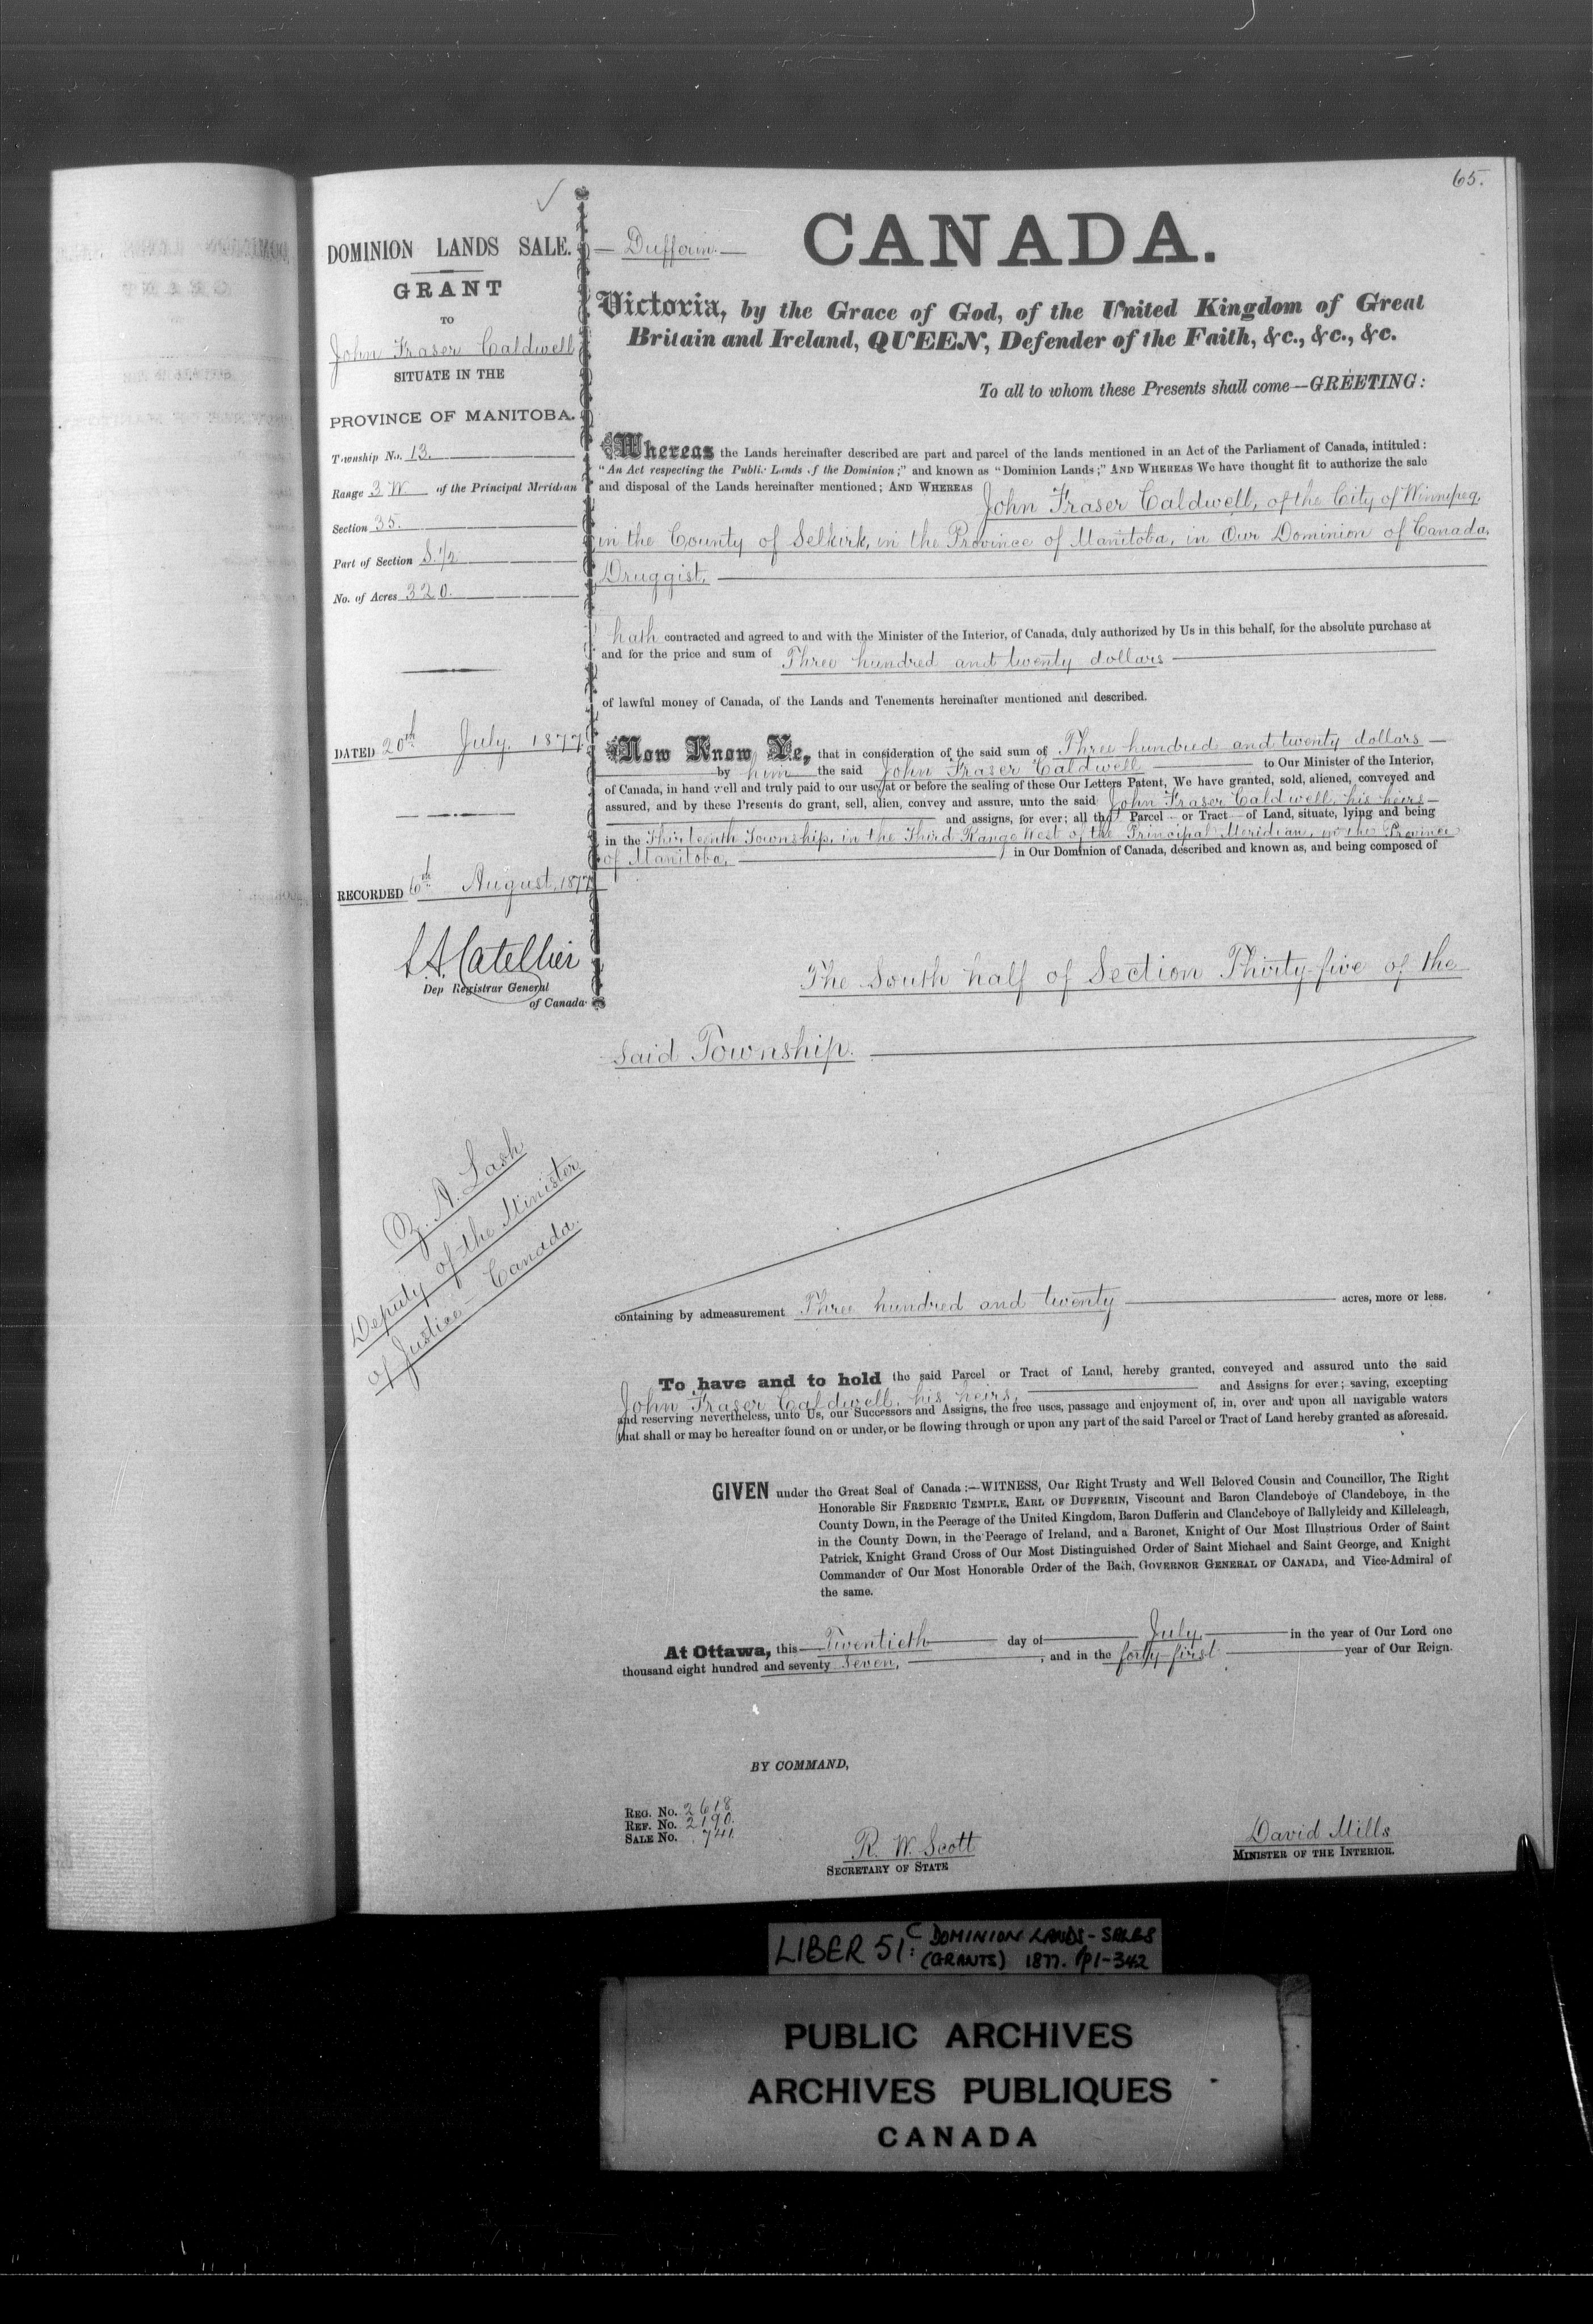 65.
DOMINION LANDS SALE.
GRANT
TO
John Fraser Caldwell
SITUATE IN THE
PROVINCE OF MANITOBA.
Township No. 13.
Range 3 W of the Principal Meridian
Section 35.
Part of Section S. 1/2
No. of Acres 320.
DATED 20th July. 1877
RECORDED 6th August, 1877
L.A. Catellier
Dep Registrar General
of Canada
Z. A. Lash
Deputy of the Minister
of Justice - Canada.
Dufferin.
CANADA.
Victoria, by the Grace of God, of the United Kingdom of Great
Britain and Ireland, QUEEN, Defender of the Faith, &c., &c., &c.
To all to whom these Presents shall come—GREETING:
Whereas the Lands hereinafter described are part and parcel of the lands mentioned in an Act of the Parliament of Canada, intituled:
"An Act respecting the Public Lands of the Dominion;" and known as "Dominion Lands;" AND WHEREAS We have thought fit to authorize the sale
and disposal of the Lands hereinafter mentioned; AND WHEREAS John Fraser Caldwell, of the City of Winnipeg,
in the County of Selkirk, in the Province of Manitoba, in Our Dominion of Canada,
Druggist,
hath contracted and agreed to and with the Minister of the Interior, of Canada, duly authorized by Us in this behalf, for the absolute purchase at
and for the price and sum of Three hundred and twenty dollars
of lawful money of Canada, of the Lands and Tenements hereinafter mentioned and described.
Now Know Ye, that in consideration of the said sum of Three hundred and twenty dollars
by him the said John Fraser Caldwell to Our Minister of the Interior,
of Canada, in hand well and truly paid to our use, at or before the sealing of these Our Letters Patent, We have granted, sold, aliened, conveyed and
assured, and by these Presents do grant, sell, alien, convey and assure, unto the said John Fraser Caldwell, his heirs
and assigns, for ever; all that Parcel or Tract of Land, situate, lying and being
in the Thirteenth Township, in the Third Range West of the Principal Meridian, in the Province
of Manitoba, in Our Dominion of Canada, described and known as, and being composed of
The South half of Section Thirty-five of the
said Township.
containing by admeasurement Three hundred and twenty acres, more or less.
To have and to hold the said Parcel or Tract of Land, hereby granted, conveyed and assured unto the said
John Fraser Caldwell, his heirs, and Assigns for ever; saving, excepting
and reserving nevertheless, unto Us, our Successors and Assigns, the free uses, passage and enjoyment of, in, over and upon all navigable waters
that shall or may be hereafter found on or under, or be flowing through or upon any part of the said Parcel or Tract of Land hereby granted as aforesaid.
GIVEN under the Great Seal of Canada:—WITNESS, Our Right Trusty and Well Beloved Cousin and Councillor, The Right
Honorable Sir FREDERIC TEMPLE, EARL OF DUFFERIN, Viscount and Baron Clandeboye of Clandeboye, in the
County Down, in the Peerage of the United Kingdom, Baron Dufferin and Clandeboye of Ballyleidy and Killeleagh,
in the County Down, in the Peerage of Ireland, and a Baronet, Knight of Our Most Illustrious Order of Saint
Patrick, Knight Grand Cross of Our Most Distinguished Order of Saint Michael and Saint George, and Knight
Commander of Our Most Honorable Order of the Bath, GOVERNOR GENERAL OF CANADA, and Vice-Admiral of
the same.
At Ottawa, this Twentieth day of July, in the year of Our Lord one
thousand eight hundred and seventy seven, and in the forty-first year of Our Reign.
BY COMMAND,
REG. NO. 2618
REF. NO. 2190.
SALE NO. 741.
R. W. Scott
SECRETARY OF STATE
David Mills
MINISTER OF THE INTERIOR.
LIBER 51C: DOMINION LANDS - SALES
(GRANTS) 1877. pp1-342
PUBLIC ARCHIVES
ARCHIVES PUBLIQUES
CANADA